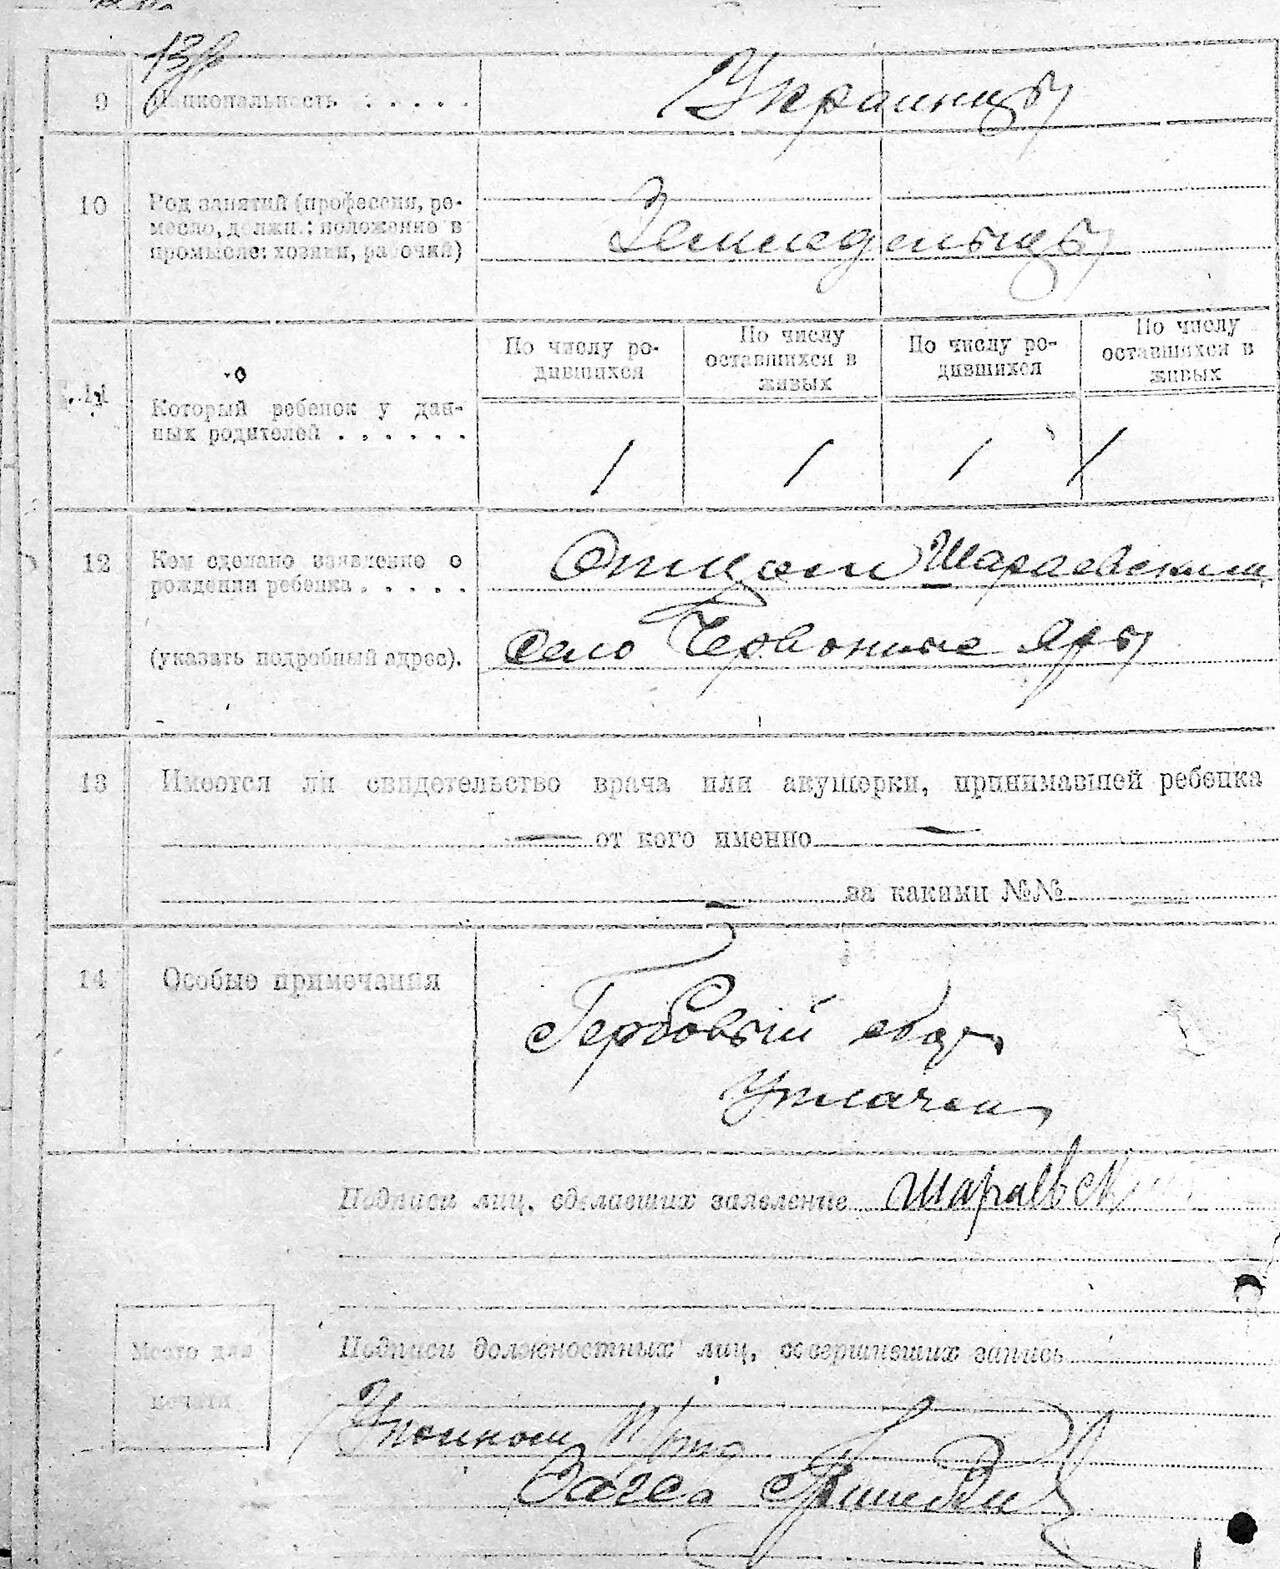 9 Национальность . . . . . Украинцы
10 Род занятий (профессия, ре-
месло, должн.: положение в
промысле: хозяин, рабочий)
Земледельцы
11 Который ребенок у дан-
ных родителей . . . . . .
По числу ро-
дившихся
По числу
оставшихся в
живых
По числу ро-
дившихся
По числу
оставшихся в
живых
1 1 1 1
12 Кем сделано заявление о
рождении ребенка . . . . .
(указать подробный адрес).
Отцом Шараевским
село Червоные Яры
13 Имеется ли свидетельство врача или акушерки, принимавшей ребенка
— от кого именно —
за какими №№
14 Особые примечания
Гербовый сбор
уплачен
Подписи лиц, сделавших заявление Шараевский
Место для
печати
Подписи должностных лиц, совершивших запись
Загса